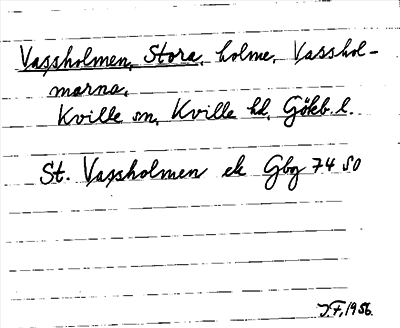 Vassholmen, Stora, holme, Vasshol-
marna,
Kville sn, Kville hd, Göteb. l.
St. Vassholmen ek Gbg 74 SO
J.F. 1956.